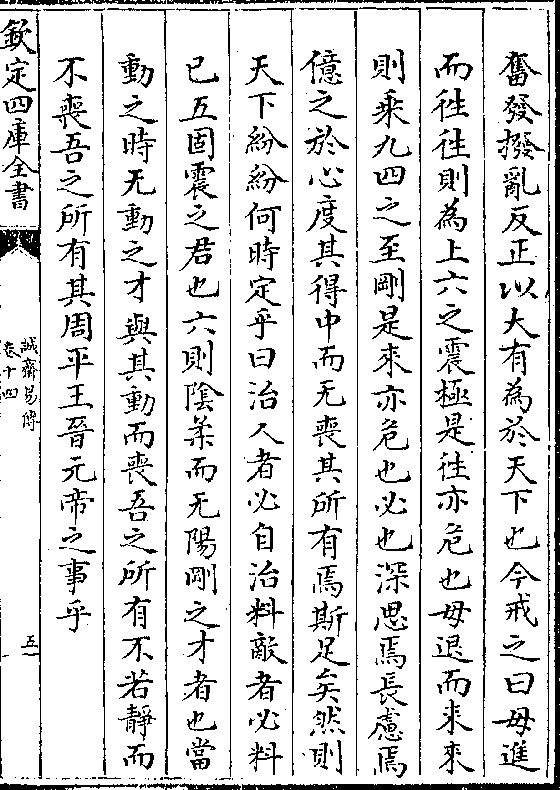 奮發撥亂反正以大有為於天下也今戒之曰毋進
而徃徃則為上六之震極是徃亦危也毋退而来來
則乘九四之至剛是來亦危也必也深思焉長慮焉
億之於心度其得中而无喪其所有焉斯足矣然則
天下紛紛何時定乎曰治人者必自治料敵者必料
已五固震之君也六則陰柔而无陽剛之才者也當
動之時无動之才與其動而喪吾之所有不若靜而
不喪吾之所有其周平王晉元帝之事乎
欽定四庫全書
誠齋易傳
卷十四
五